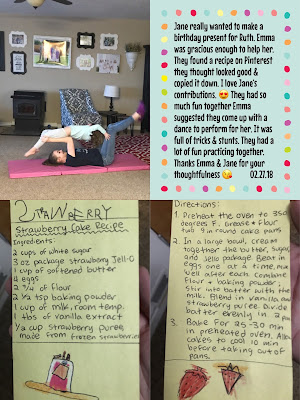 Jane really wanted to make a
birthday present for Ruth. Emma
was gracious enough to help her.
They found a recipe on Pinterest
they thought looked good &
copied it down. I love Jane's
contributions. 😍 They had so
much fun together Emma
suggested they come up with a
dance to perform for her. It was
full of tricks & stunts. They had a
lot of fun practicing together.
Thanks Emma & Jane for your
thoughtfulness 😘 02.27.18
STRAWBERRY
Strawberry Cake Recipe
Ingredients:
2 cups of white sugar
3 oz package strawberry Jell-O
1 cup of softened butter
4 eggs
2 3/4 of flour
2 1/2 tsp baking powder
1 cup of milk, room temp.
1 tbs of vanilla extract
1/2 cup strawberry puree
made from frozen strawberries
Directions:
1. Preheat the oven to 350
degrees F. Grease + flour
two 9 in round cake pans.
2. In a large bowl, cream
together the butter, sugar,
and Jello package. Beat in
eggs one at a time, mix
well after each. Combine
flour + baking powder;
stir into batter with the
milk. Blend in vanilla and
strawberry puree. Divide
batter evenly in 2 pans.
3. Bake for 25-30 min
in preheated oven. Allow
cakes to cool 10 min
before taking out of
pans.